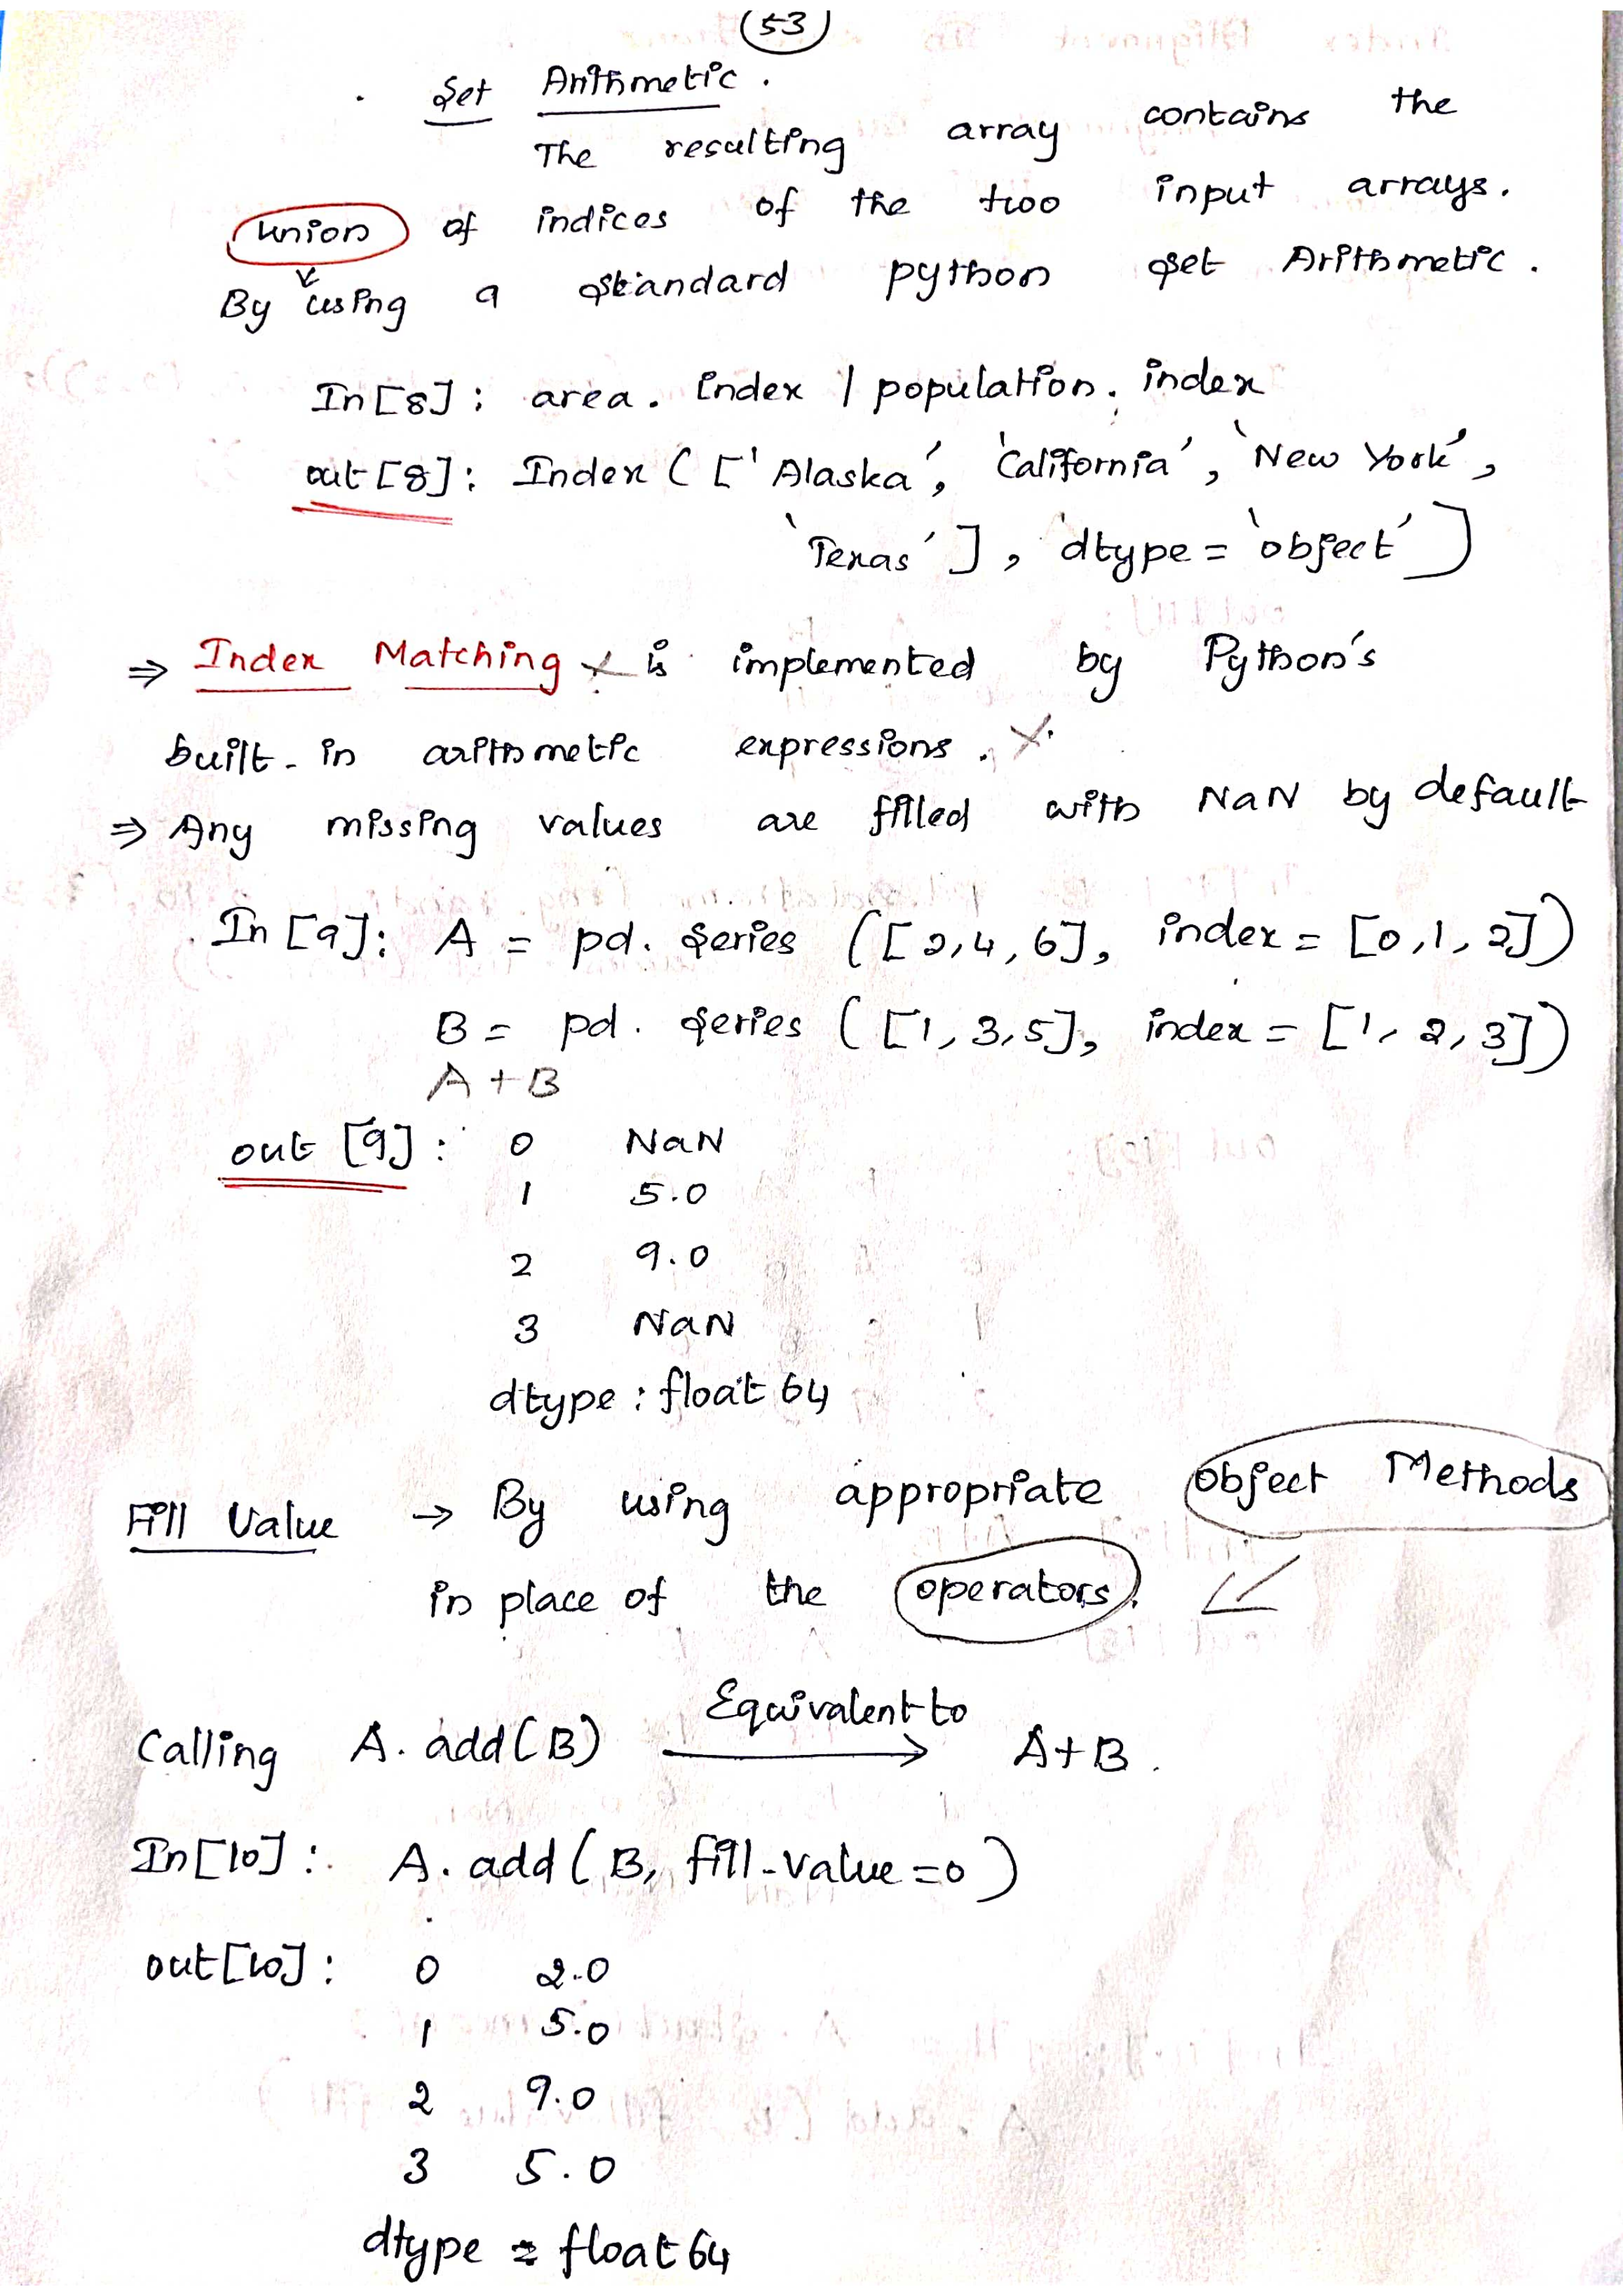 53
Set Arithmetic.
The resulting array contains the
union of indices of the two input arrays.
By using a standard python set Arithmetic.
In[8]: area. index | population. index
out[8]: Index (['Alaska', 'California', 'New York',
'Texas'], dtype = 'object')
⇒ Index Matching is implemented by Python's
built-in arithmetic expressions.
⇒ Any missing values are filled with NaN by default
In [9]: A = pd. Series ([2,4,6], index = [0,1,2])
B = pd. Series ([1,3,5], index = [1,2,3])
A+B
out [9]: 0 NaN
1 5.0
2 9.0
3 NaN
dtype: float 64
Fill Value → By using appropriate Object Methods
in place of the operators.
Equivalent to
Calling A. add(B) → A+B.
In[10]: A. add (B, fill-value=0)
out[10]: 0 2.0
1 5.0
2 9.0
3 5.0
dtype = float 64